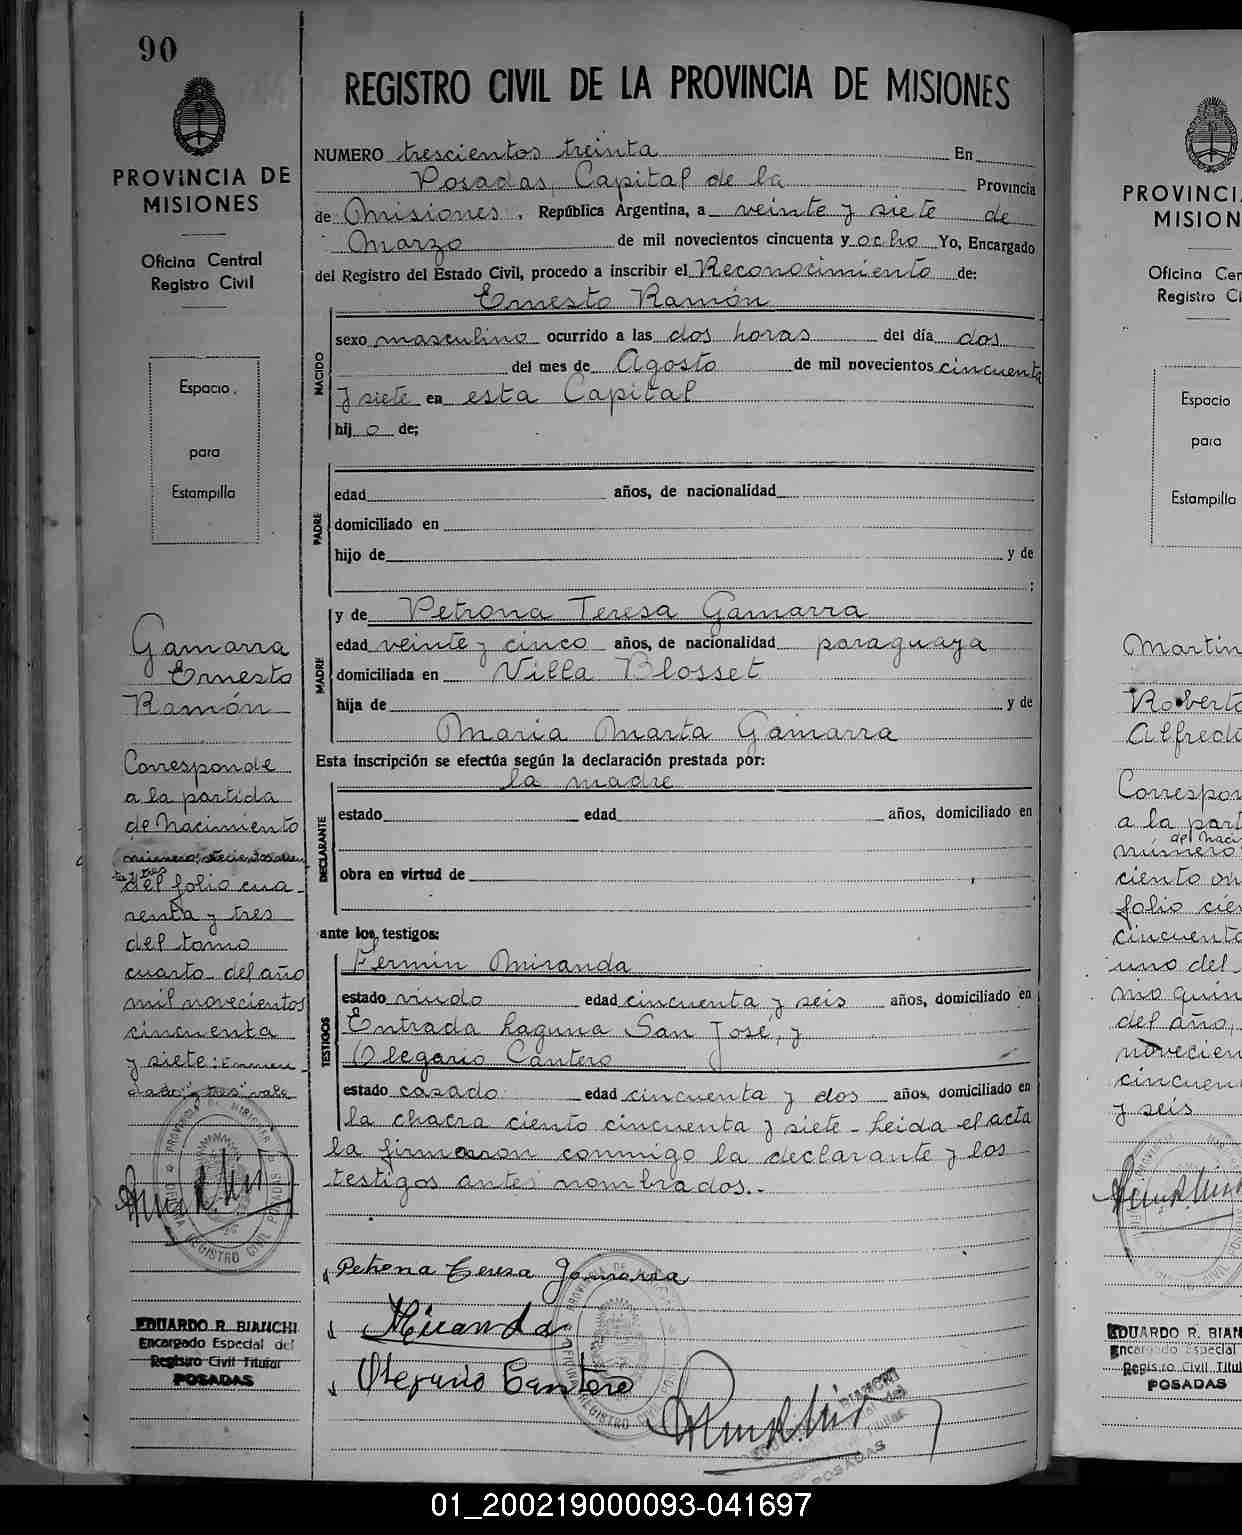 90
PROVINCIA DE
MISIONES
Oficina Central
Registro Civil
Espacio
para
Estampilla
Gamarra
Ernesto
Ramón
Corresponde
a la partida
de Nacimiento
del folio cua-
renta y tres
del tomo
cuarto del año
mil novecientos
cincuenta
y siete:
"tres" vale
EDUARDO R. BIANCHI
Encargado Especial del
Registro Civil Titular
POSADAS
REGISTRO CIVIL DE LA PROVINCIA DE MISIONES
NUMERO trescientos treinta En
Posadas, Capital de la Provincia
de Misiones. República Argentina, a veinte y siete de
Marzo de mil novecientos cincuenta y ocho Yo, Encargado
del Registro del Estado Civil, procedo a inscribir el Reconocimiento de:
Ernesto Ramón
NACIDO
sexo masculino ocurrido a las dos horas del día dos
del mes de Agosto de mil novecientos cincuenta
y siete en esta Capital
hijo de;
PADRE
edad años, de nacionalidad
domiciliado en
hijo de y de
;
MADRE
y de Petrona Teresa Gamarra
edad veinte y cinco años, de nacionalidad paraguaya
domiciliada en Villa Blosset
hija de y de
Maria Marta Gamarra
Esta inscripción se efectúa según la declaración prestada por:
la madre
DECLARANTE
estado edad años, domiciliado en
obra en virtud de
ante los testigos:
Fermin Miranda
TESTIGOS
estado viudo edad cincuenta y seis años, domiciliado en
Entrada Laguna San José, y
Olegario Cantero
estado casado edad cincuenta y dos años, domiciliado en
la chacra ciento cincuenta y siete - Leida el acta
la firmaron conmigo la declarante y los
testigos antes nombrados.-
Petrona Teresa Gamarra
Miranda
Olegario Cantero
BIANCHI
Titular
POSADAS
PROVINCIA
MISION
Oficina Cen
Registro Ci
Espacio
para
Estampilla
Martin
Roberto
Alfredo
Correspon
a la part
del naci
número
ciento on
folio cien
cincuenta
uno del
mo quin
del año,
novecien
cincuen
y seis
EDUARDO R. BIAN
Encargado Especial
Registro Civil Titul
POSADAS
01_200219000093-041697